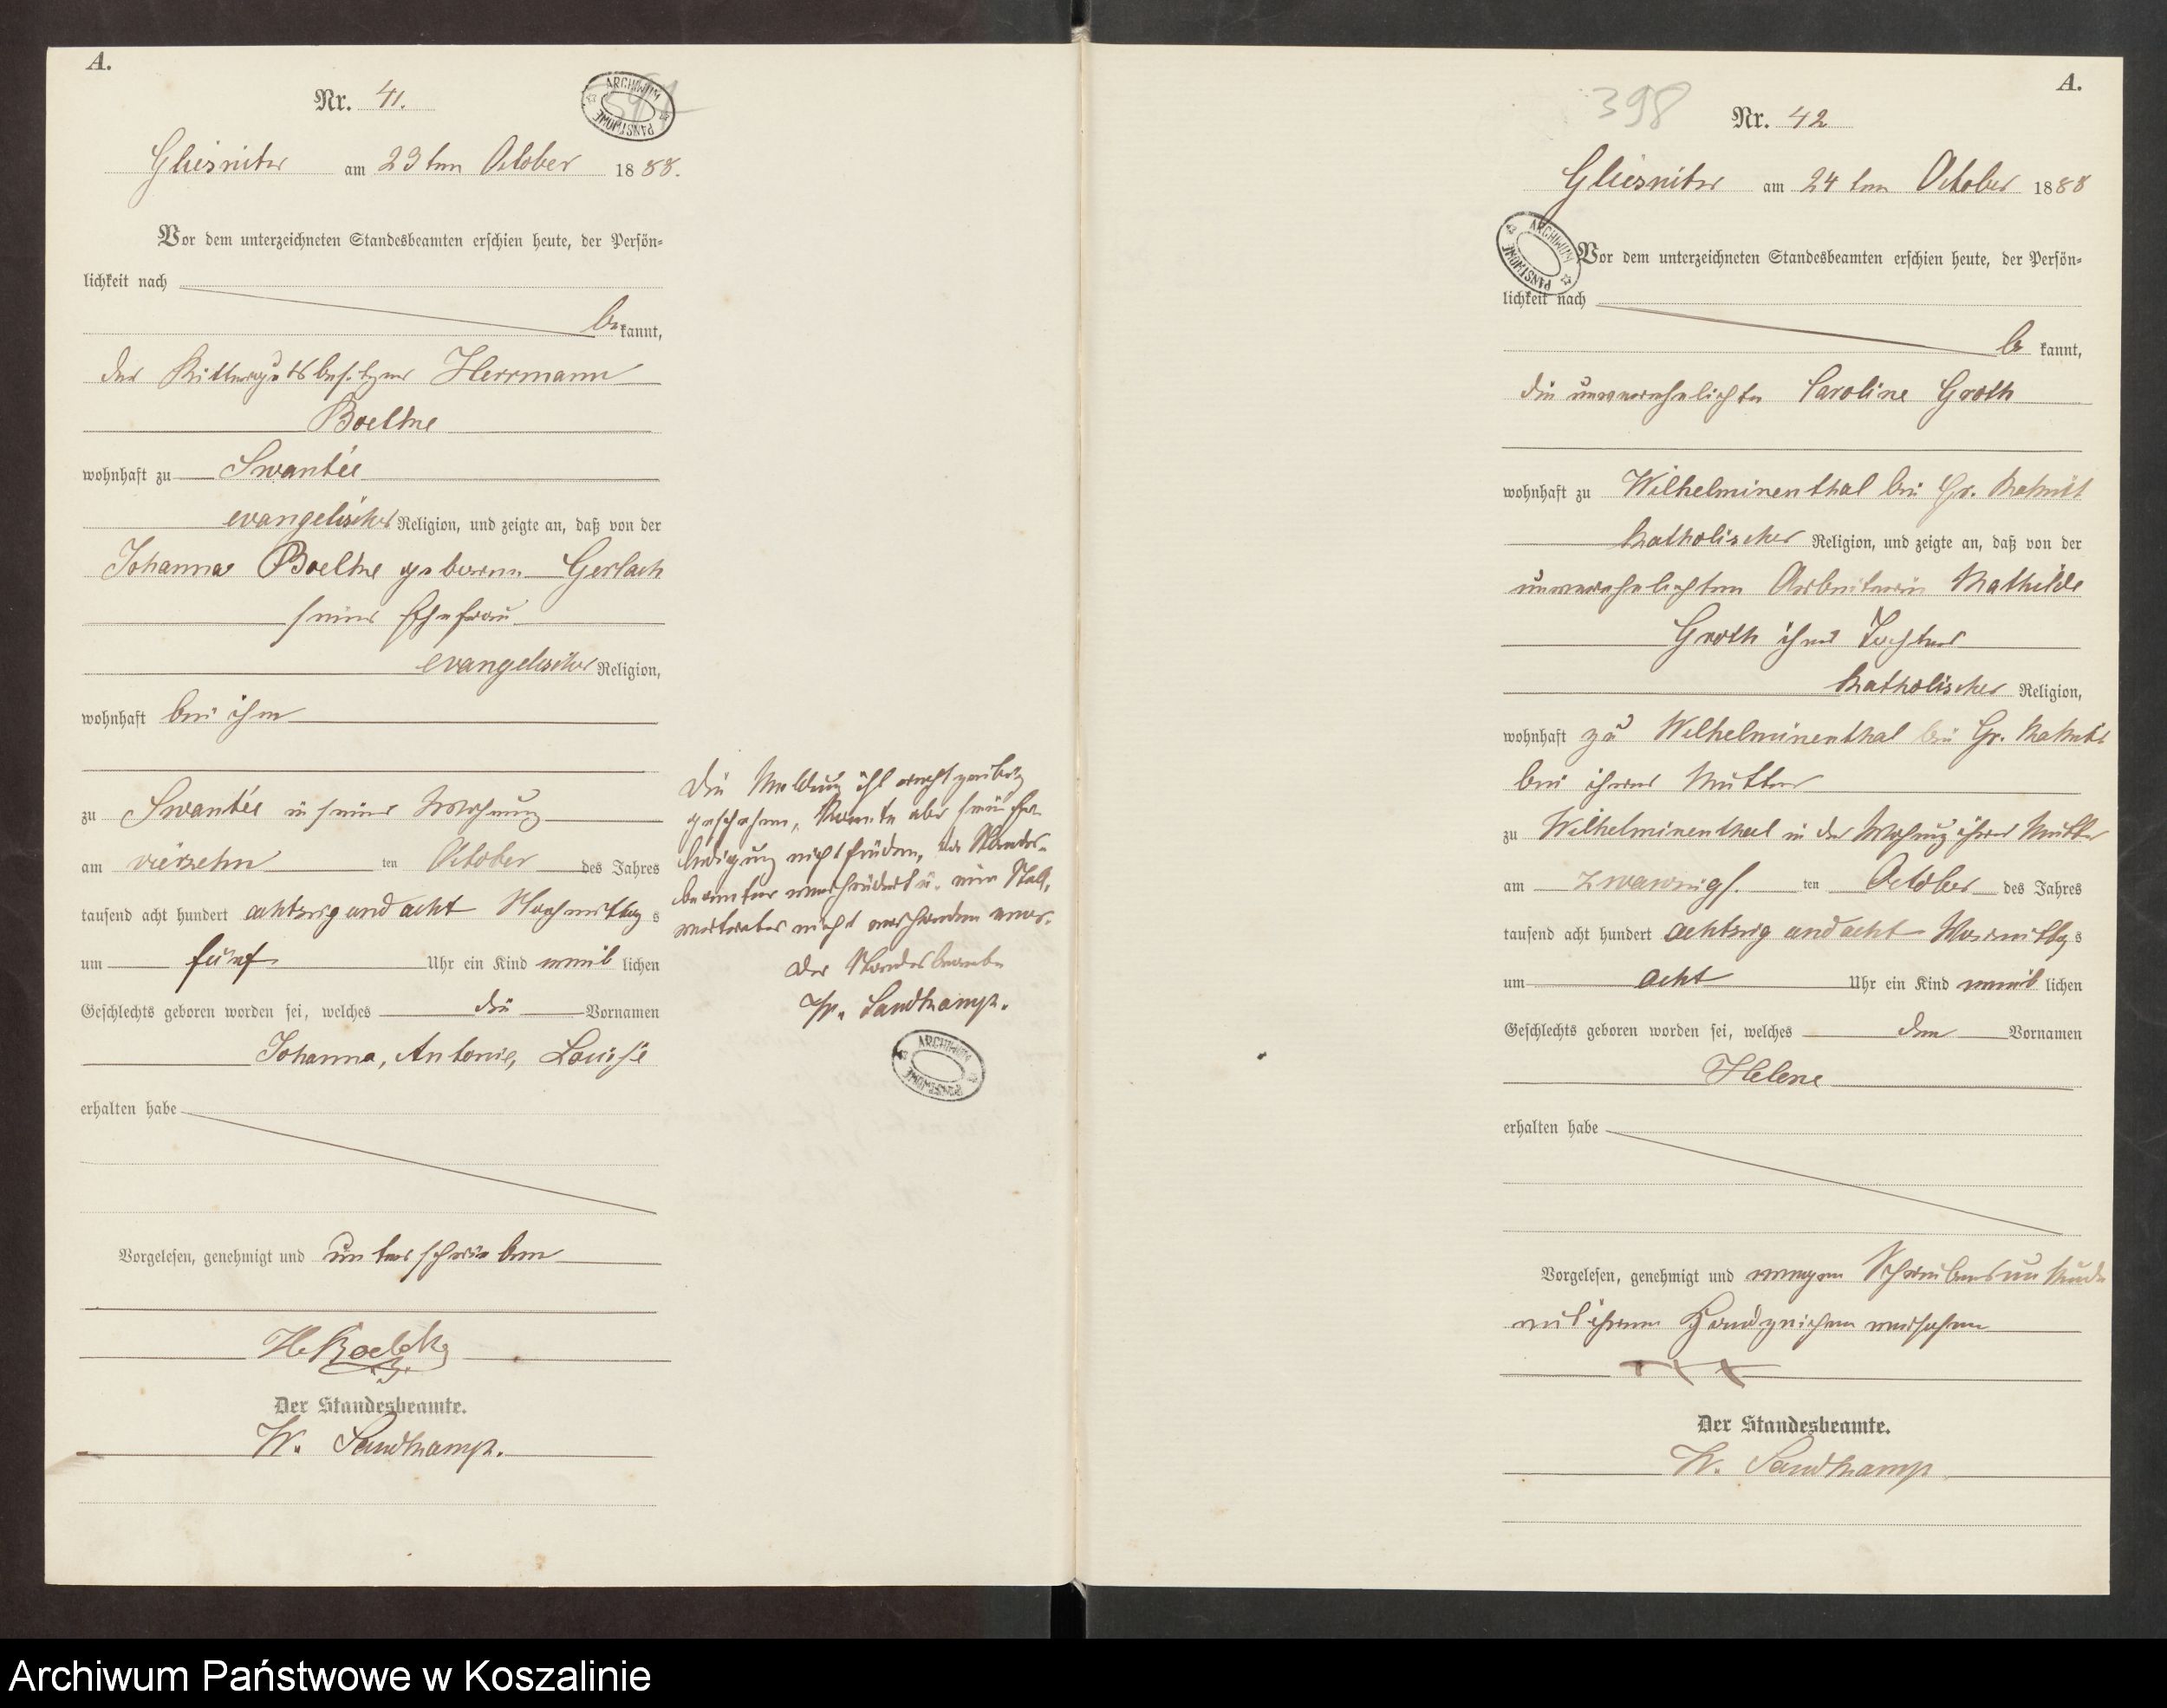 A.
Nr. 41.
ARCHIWUM PAŃSTWOWE
Gliesnitz am 23ten October 1888.
Vor dem unterzeichneten Standesbeamten erschien heute, der Persön-
lichkeit nach
bekannt,
der Rittergutsbesitzer Herrmann
Boeltke
wohnhaft zu Swantée
evangelischer Religion, und zeigte an, daß von der
Johanna Boeltke geborene Gerlach
seiner Ehefrau
evangelischer Religion,
wohnhaft bei ihm
zu Swantée in seiner Wohnung
am vierzehn ten October des Jahres
tausend acht hundert achtzig und acht Nachmittags
um fünf Uhr ein Kind weiblichen
Geschlechts geboren worden sei, welches die Vornamen
Johanna, Antonie, Louise
erhalten habe
Vorgelesen, genehmigt und unterschrieben
H. Boeltke
Der Standesbeamte.
W. Sandkamp.
Die Meldung ist rechtzeitig
geschehen, konnte aber seine Er-
ledigung nicht finden, da Standes-
beamter verhindert u. ein Stell-
vertreter nicht vorhanden war.
Der Standesbeamte
W. Sandkamp.
ARCHIWUM PAŃSTWOWE
A.
398
Nr. 42
Gliesnitz am 24ten October 1888
ARCHIWUM PAŃSTWOWE
Vor dem unterzeichneten Standesbeamten erschien heute, der Persön-
lichkeit nach
bekannt,
die unverehelichte Caroline Groth
wohnhaft zu Wilhelminenthal bei Gr.
katholischer Religion, und zeigte an, daß von der
unverehelichten Arbeiterin Mathilde
Groth ihrer Tochter
katholischer Religion,
wohnhaft zu Wilhelminenthal bei Gr.
bei ihrer Mutter
zu Wilhelminenthal in der Wohnung ihrer Mutter
am zwanzigs. ten October des Jahres
tausend acht hundert achtzig und acht Vormittags
um acht Uhr ein Kind weiblichen
Geschlechts geboren worden sei, welches den Vornamen
Helene
erhalten habe
Vorgelesen, genehmigt und wegen Schreibensunkunde
mit ihrem Handzeichen versehen
+++
Der Standesbeamte.
W. Sandkamp.
Archiwum Państwowe w Koszalinie